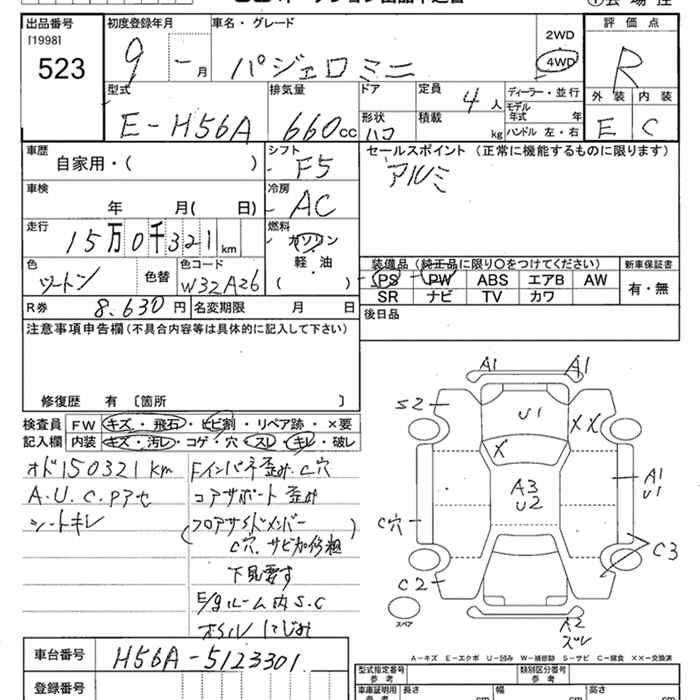 出品番号
[1998]
523
初度登録年月
9 - 月
車名・グレード
パジェロミニ
2WD
4WD
評価点
R
外装 内装
E C
型式
E-H56A
排気量
660cc
ドア
形状
ハコ
定員
4人
積載
kg
ディーラー・並行
モデル年式 年
ハンドル 左・右
車歴
自家用・( )
シフト
F5
セールスポイント (正常に機能するものに限ります)
アルミ
車検
年 月( 日)
冷房
AC
走行
15万0千321km
燃料
ガソリン
軽・油
( )
色
ツートン
色替
色コード
W32A26
装備品 (純正品に限り○をつけてください)
PS PW ABS エアB AW
SR ナビ TV カワ
新車保証書
有・無
R券
8,630円
名変期限 月 日
後日品
注意事項申告欄(不具合内容等は具体的に記入して下さい)
修復歴 有 〔箇所 〕
検査員記入欄
FW キズ・飛石・ヒビ割・リペア跡・×要
内装 キズ・汚レ・コゲ・穴・スレ・キレ・破レ
オド150321km
A.U.C.Pアセ
シートキレ
Fインパネ歪み C穴
コアサポート歪み
(フロアサイドメンバー
C穴、サビ加修粗)
下見要す
E/gルーム内S.C
オイルにじみ
A1 A1
S2
U1
XX
X
A3
U2
A1
U1
C穴
C3
C2
スペア
A2
ズレ
A-キズ E-エクボ U-凹み W-補修跡 S-サビ C-腐食 XX-交換済
車台番号
H56A-5123301
登録番号
型式指定番号
参考
類別区分番号
参考
車庫証明用
参考
長さ cm
幅 cm
高さ cm